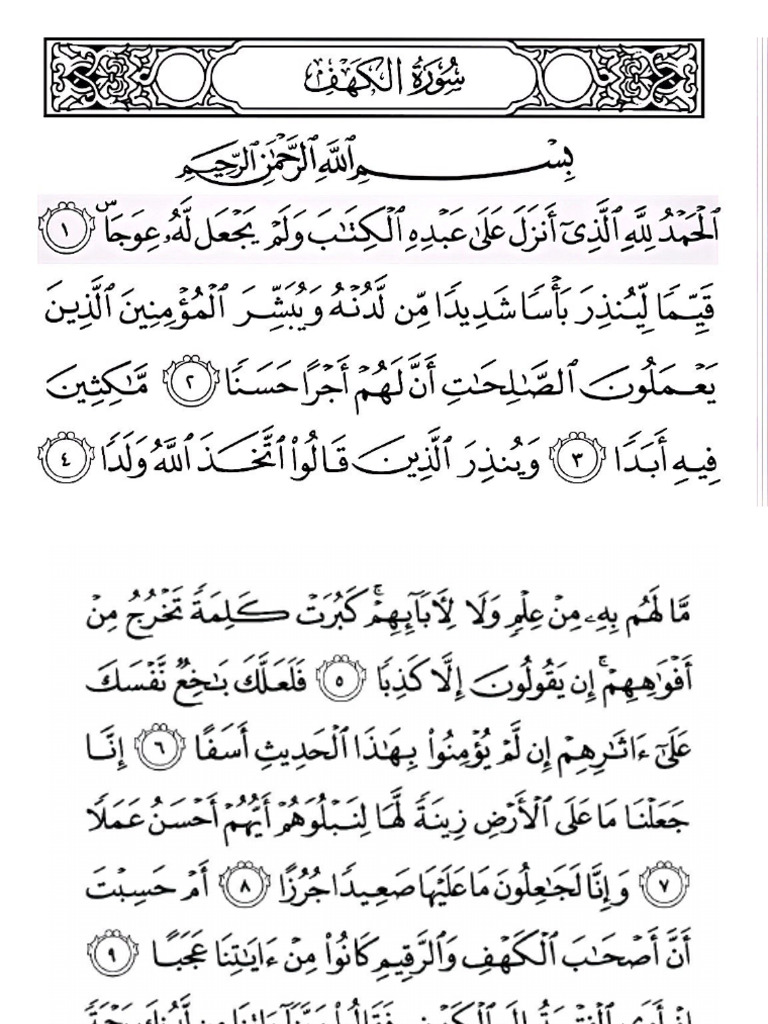 سُورَةُ الكَهْفِ
بِسْمِ ٱللَّهِ ٱلرَّحْمَٰنِ ٱلرَّحِيمِ
ٱلْحَمْدُ لِلَّهِ ٱلَّذِىٓ أَنزَلَ عَلَىٰ عَبْدِهِ ٱلْكِتَٰبَ وَلَمْ يَجْعَل لَّهُۥ عِوَجَاۜ ١
قَيِّمًا لِّيُنذِرَ بَأْسًا شَدِيدًا مِّن لَّدُنْهُ وَيُبَشِّرَ ٱلْمُؤْمِنِينَ ٱلَّذِينَ
يَعْمَلُونَ ٱلصَّٰلِحَٰتِ أَنَّ لَهُمْ أَجْرًا حَسَنًا ٢ مَّٰكِثِينَ
فِيهِ أَبَدًا ٣ وَيُنذِرَ ٱلَّذِينَ قَالُوا۟ ٱتَّخَذَ ٱللَّهُ وَلَدًا ٤
مَّا لَهُم بِهِۦ مِنْ عِلْمٍ وَلَا لِءَابَآئِهِمْ ۚ كَبُرَتْ كَلِمَةً تَخْرُجُ مِنْ
أَفْوَٰهِهِمْ ۚ إِن يَقُولُونَ إِلَّا كَذِبًا ٥ فَلَعَلَّكَ بَٰخِعٌ نَّفْسَكَ
عَلَىٰٓ ءَاثَٰرِهِمْ إِن لَّمْ يُؤْمِنُوا۟ بِهَٰذَا ٱلْحَدِيثِ أَسَفًا ٦ إِنَّا
جَعَلْنَا مَا عَلَى ٱلْأَرْضِ زِينَةً لَّهَا لِنَبْلُوَهُمْ أَيُّهُمْ أَحْسَنُ عَمَلًا
٧ وَإِنَّا لَجَٰعِلُونَ مَا عَلَيْهَا صَعِيدًا جُرُزًا ٨ أَمْ حَسِبْتَ
أَنَّ أَصْحَٰبَ ٱلْكَهْفِ وَٱلرَّقِيمِ كَانُوا۟ مِنْ ءَايَٰتِنَا عَجَبًا ٩